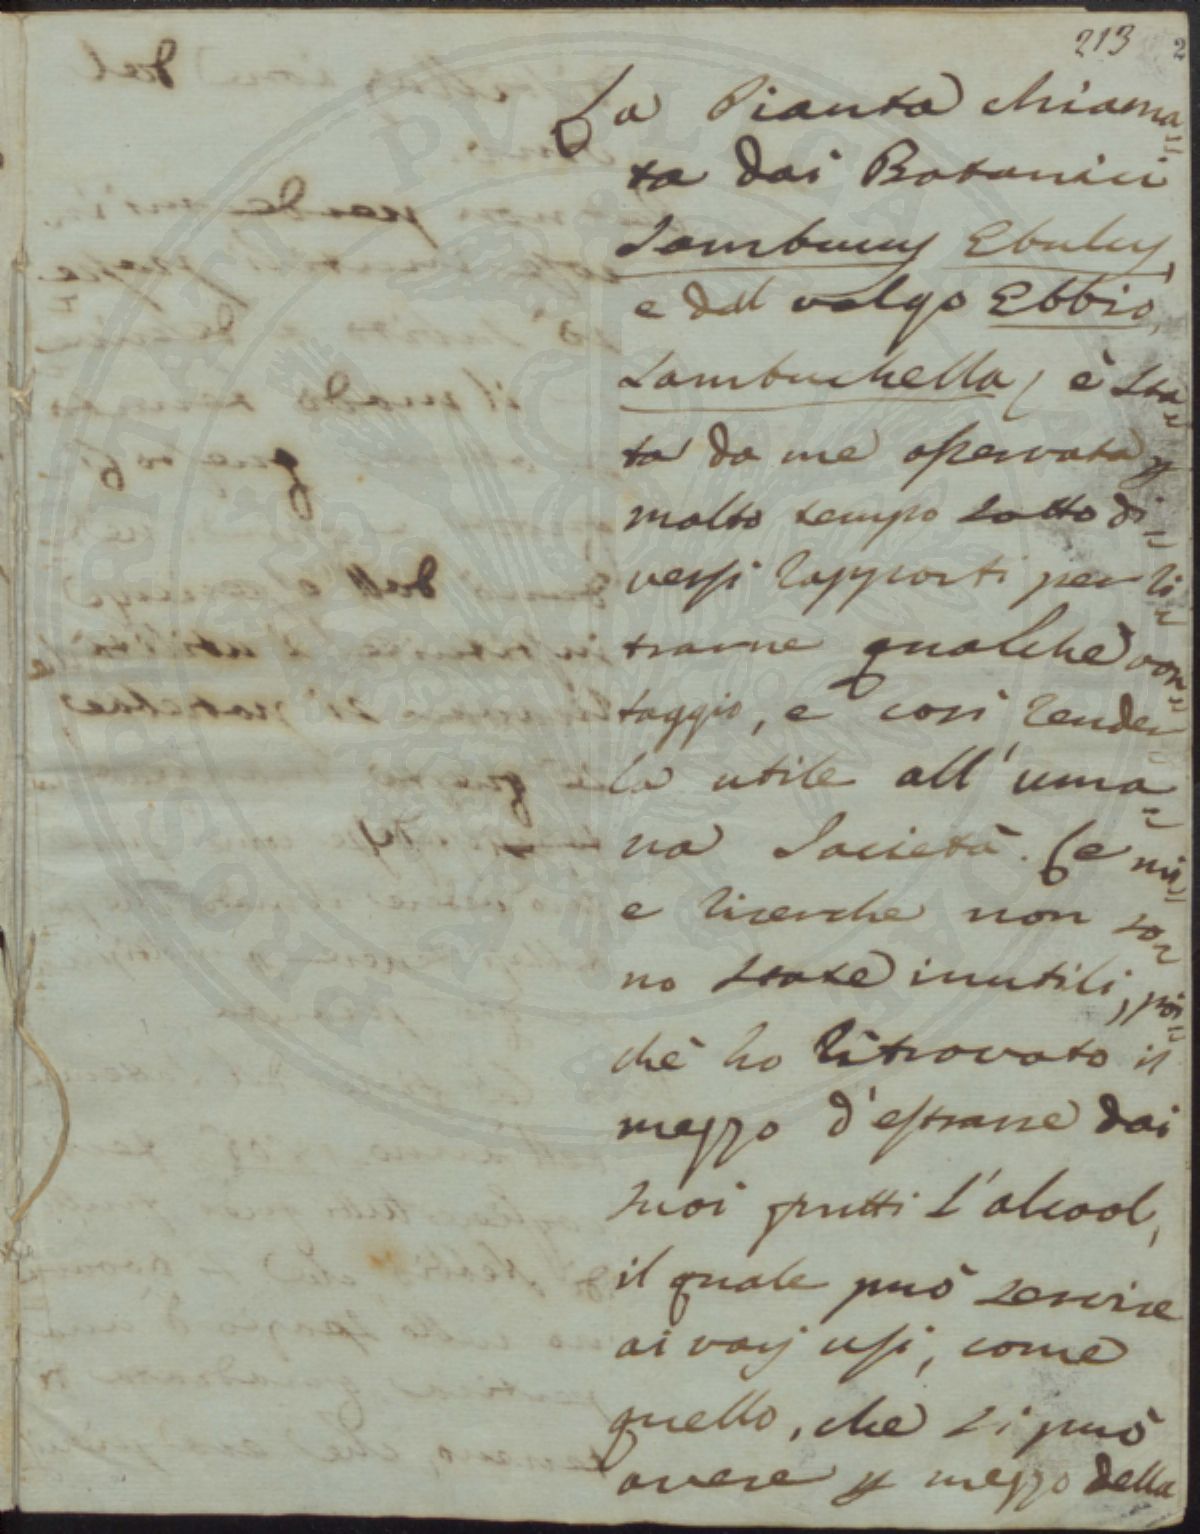 213 2
La Pianta chiama=
ta dai Botanici
Sambucus Ebulus,
e dal volgo Ebbio,
Sambuchella, è sta=
ta da me osservata p
molto tempo sotto di=
versi rapporti per ri=
trarne qualche van=
taggio, e così render
la utile all'uma=
na Società. Le mi=
e ricerche non so=
no state inutili, poi=
chè ho ritrovato il
mezzo d'estrarre dai
suoi frutti l'alcool,
il quale può servire
ai varj usi, come
quello, che si può
avere p mezzo della